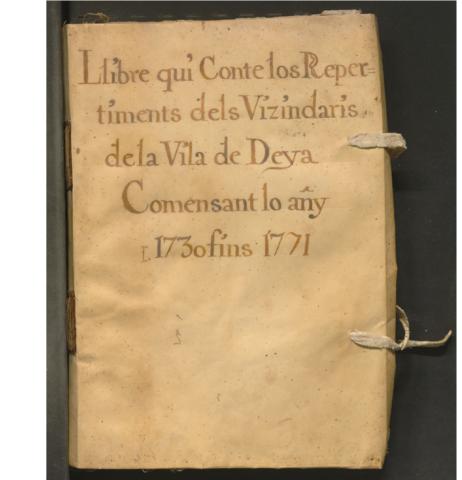 Llibre qui Conte los Reper=
timents dels Vizindaris
de la Vila de Deya
Comensant lo añy
1730 fins 1771